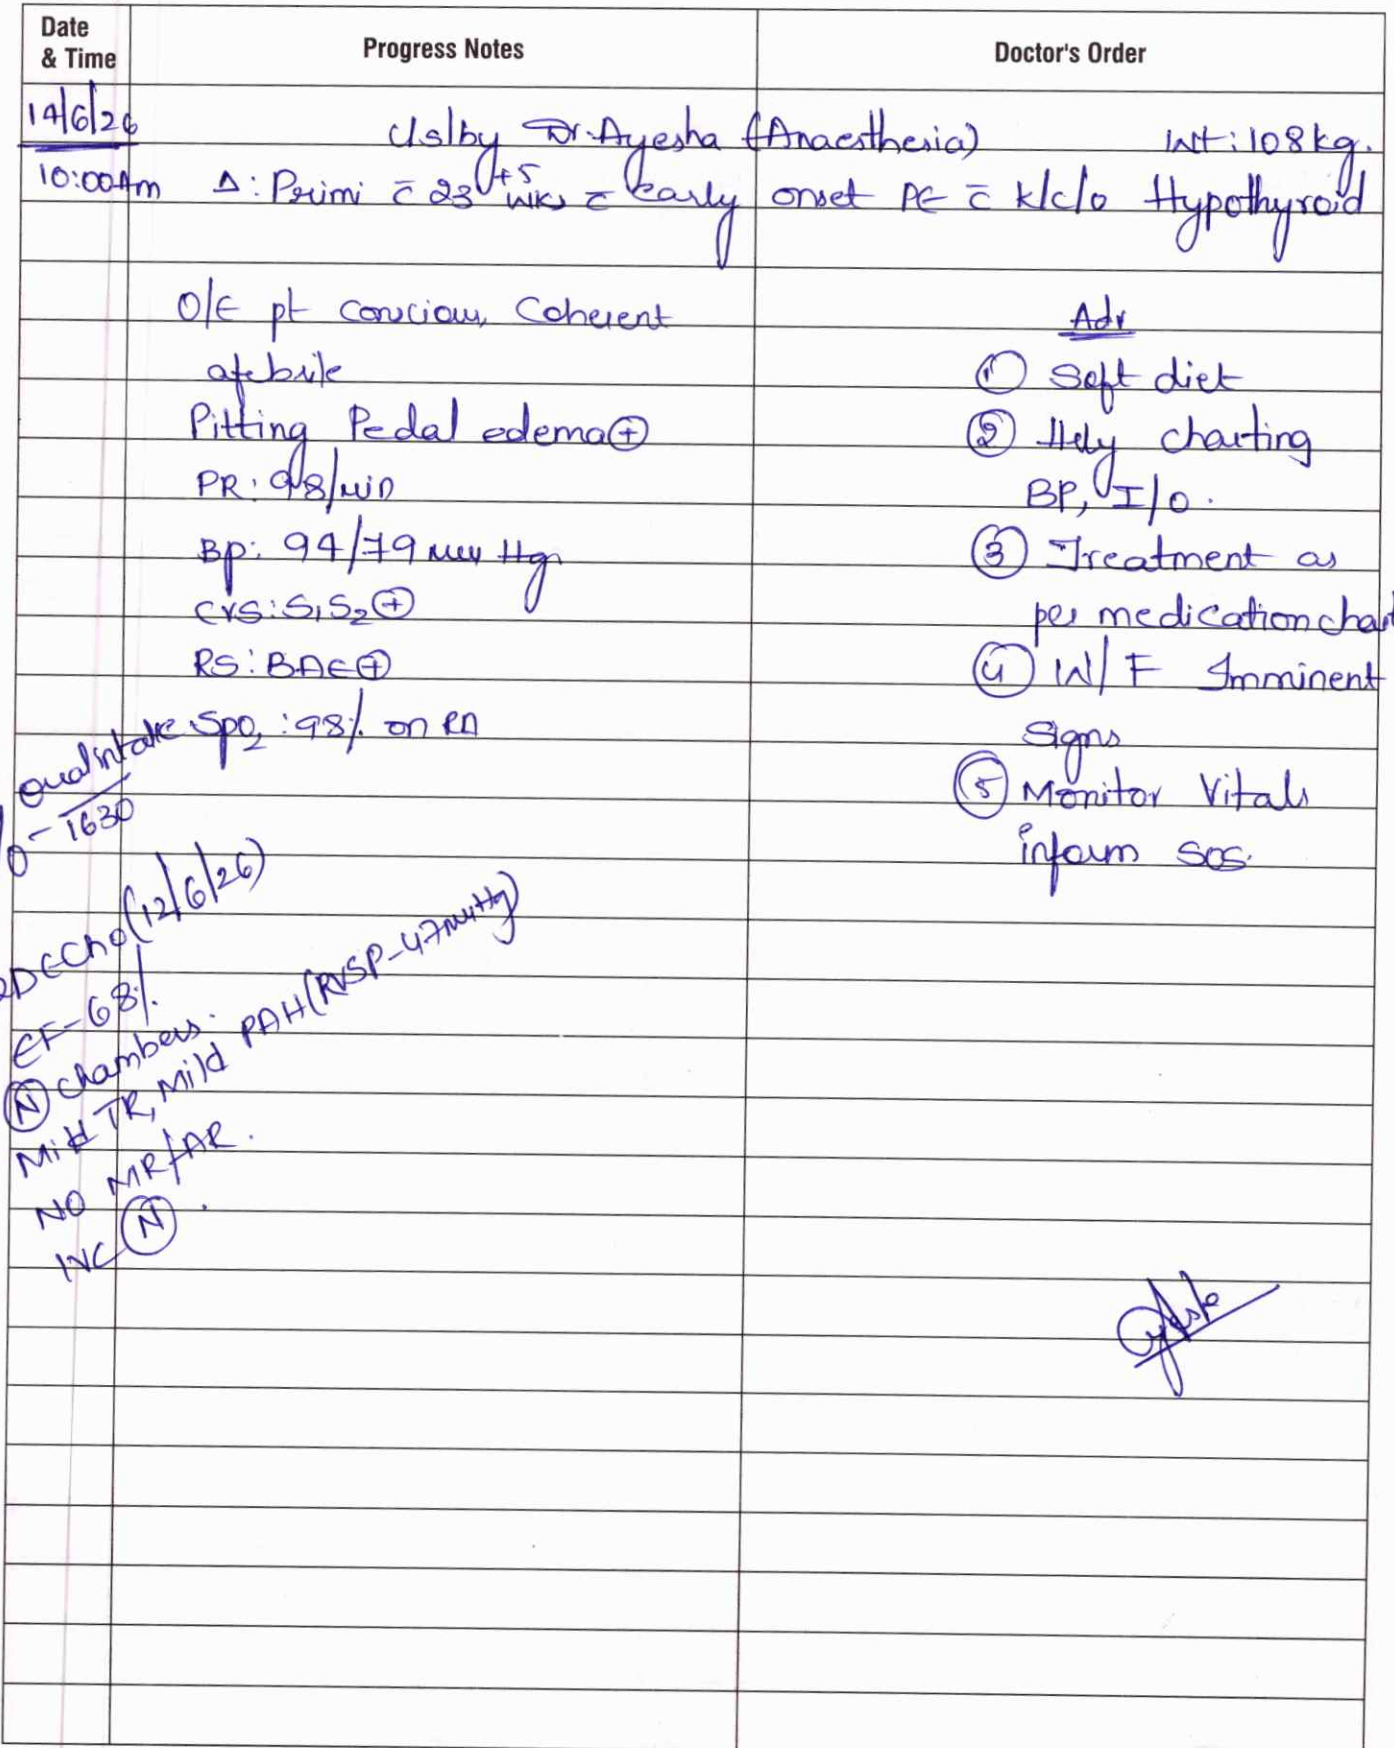 Date & Time
Progress Notes
Doctor's Order
14/6/26
c/s/by Dr. Ayesha (Anaesthesia) Wt: 108 kg.
10:00 Am Δ: Primi c̄ 23+5 wks c̄ early onset PE c̄ k/c/o Hypothyroid
O/E pt conscious, Coherent
afebrile
Pitting Pedal edema ⊕
PR: 98/min
BP: 94/79 mm Hg
CVS: S1S2 ⊕
RS: BAE ⊕
SpO2: 98% on RA
oral intake
1630
2D ECho (12/6/26)
EF-68%.
Ⓝ chambers.
Mild TR, Mild PAH (RVSP-47mmHg)
NO MR/AR.
IVC Ⓝ.
Adv
① Soft diet
② Hrly charting
BP, I/O.
③ Treatment as
per medication chart
④ W/F Imminent
Signs
⑤ Monitor Vitals
inform SOS.